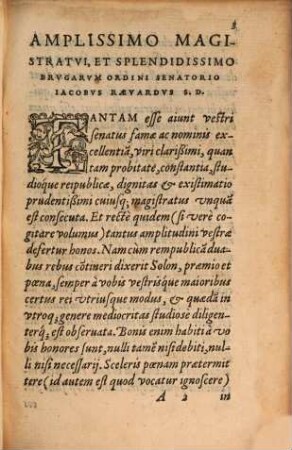 3
AMPLISSIMO MAGI-
STRATVI, ET SPLENDIDISSIMO
BRVGARVM ORDINI SENATORIO
IACOBVS RÆVARDVS S. D.
TANTAM esse aiunt vestri
senatus famæ ac nominis ex-
cellentiā, viri clarissimi, quan
tam probitate, constantia, stu-
dioque reipublicæ, dignitas & existimatio
prudentißimi cuiusq; magistratus vnquā
est consecuta. Et rectè quidem (si verè co-
gitare volumus) tantus amplitudini vestræ
defertur honos. Nam cùm rempublicā dua-
bus rebus cōtineri dixerit Solon, præmio et
pœna, semper à vobis vestrisque maioribus
certus rei vtriusque modus, & quædā in v-
troq; genere mediocritas studiose diligen-
terq́; est obseruata. Bonis enim habiti à vo
bis honores sunt, nulli tamē nisi debiti, nul-
li nisi necessarij. Sceleris pœnam prætermit
tere (id autem est quod vocatur ignoscere)
A 2 in